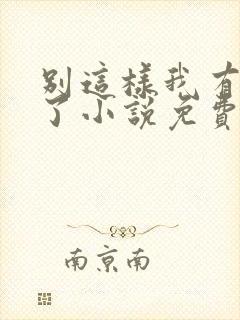 別這樣我有
了小說免費
南京南